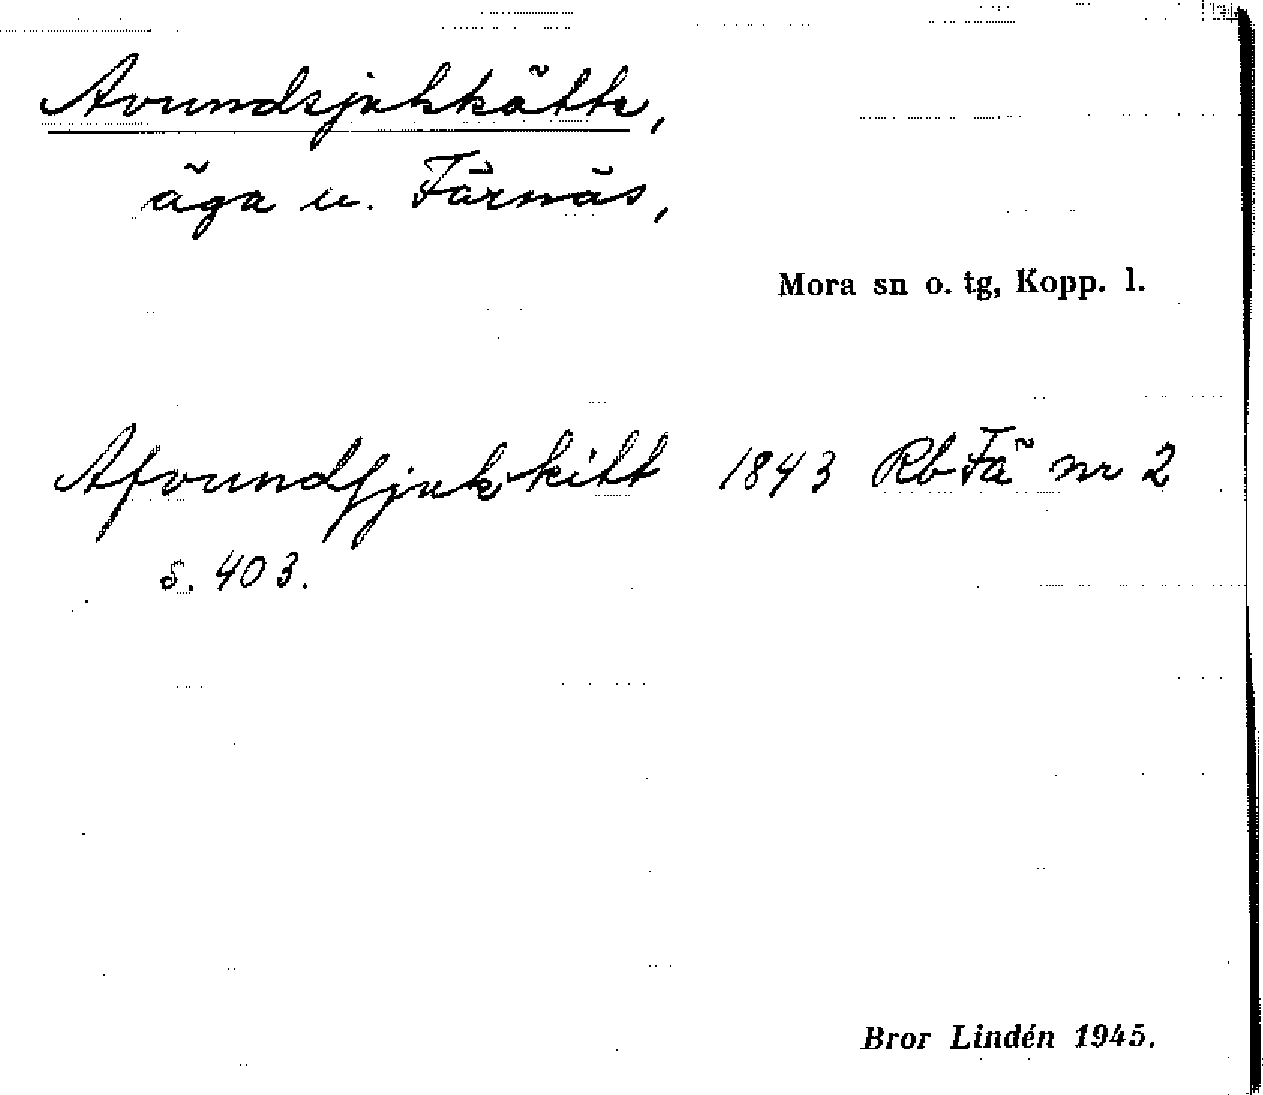 Avundsjukkätte,
äga u. Färnäs,
Mora sn o. tg, Kopp. l.
Afvundsjuk kitt 1843 Rb Fä nr 2
s. 403.
Bror Lindén 1945.